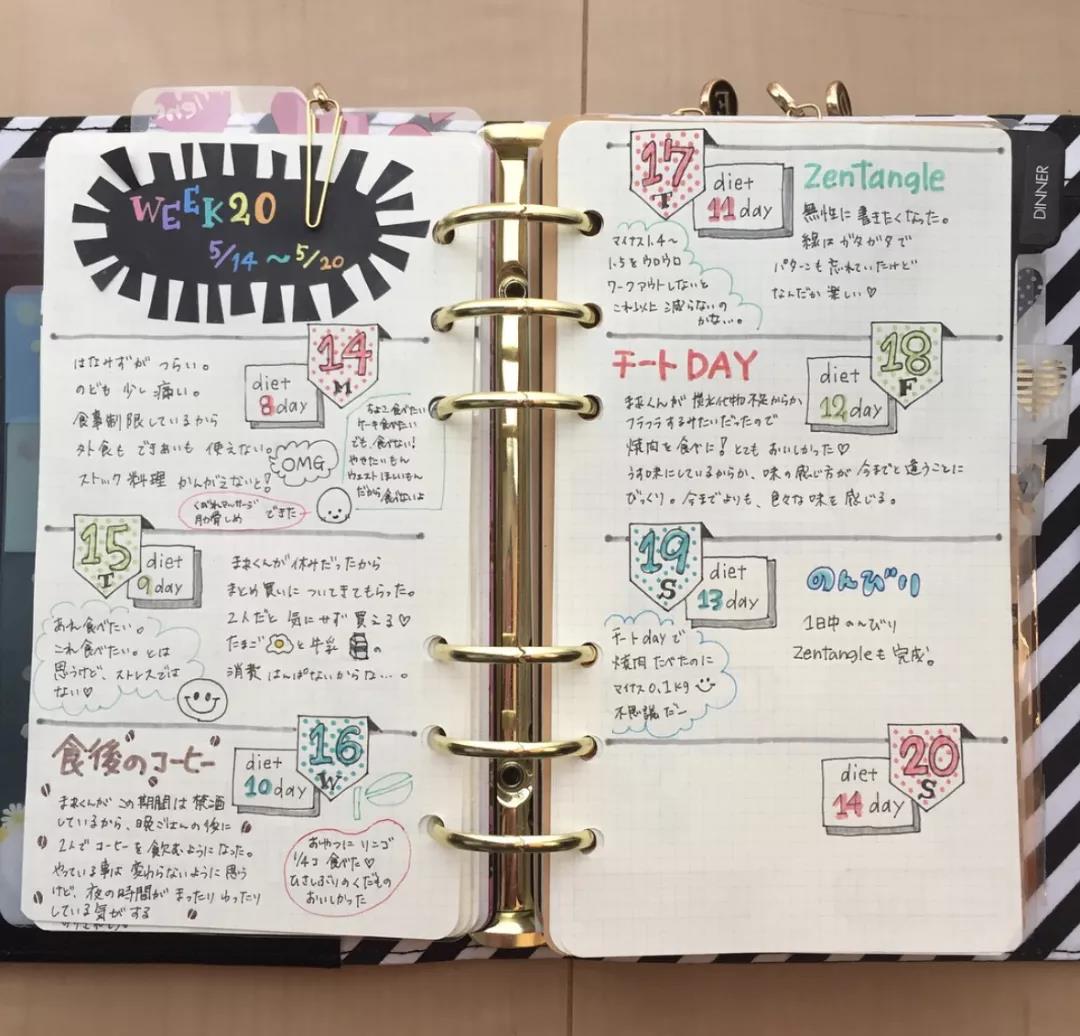 WEEK20
5/14 〜 5/20
14
M
diet
8day
はなみずが つらい。
のども 少し 痛い。
食事制限しているから
外食も できあいも 使えない。
ストック料理 かんがえないと!
OMG
ちょこ食べたい
ケーキ食べたい
でも、食べない!
やせたいもん
ウエストほしいもん
だから 食べないよ
くびれマッサージ
肋骨しめ できた
15
T
diet
9day
まぁくんが 休みだったから
まとめ買いに ついてきてもらった。
2人だと 気にせず 買える♡
たまごと牛乳の
消費 はんぱないからな…。
あれ食べたい。
これ食べたい。とは
思うけど、ストレスでは
ない♡
16
W
diet
10day
食後のコーヒー
まぁくんが この期間は 禁酒
しているから、晩ごはんの後に
2人で コーヒーを 飲むようになった。
やっている事は 変わらないように 思う
けど、夜の時間が まったり ゆったり
している気がする
おやつに リンゴ
1/4コ 食べた♡
ひさしぶりのくだもの
おいしかった
17
T
diet
11day
Zentangle
無性に 書きたくなった。
線は ガタガタで
パターンも 忘れていたけど
なんだか 楽しい♡
マイナス1.4〜
1.5をウロウロ
ワークアウトしないと
これ以上 減らないの
かな…。
18
F
diet
12day
チートDAY
まぁくんが 炭水化物不足からか
フラフラするみたいだったので
焼肉を食べに! とても おいしかった♡
うす味にしているからか、味の感じ方が 今までと 違うことに
びっくり。今までよりも、色々な味を感じる。
19
S
diet
13day
のんびり
1日中 のんびり
Zentangleも 完成。
チートdayで
焼肉 たべたのに
マイナス0.1kg
不思議だー
20
S
diet
14day
DINNER